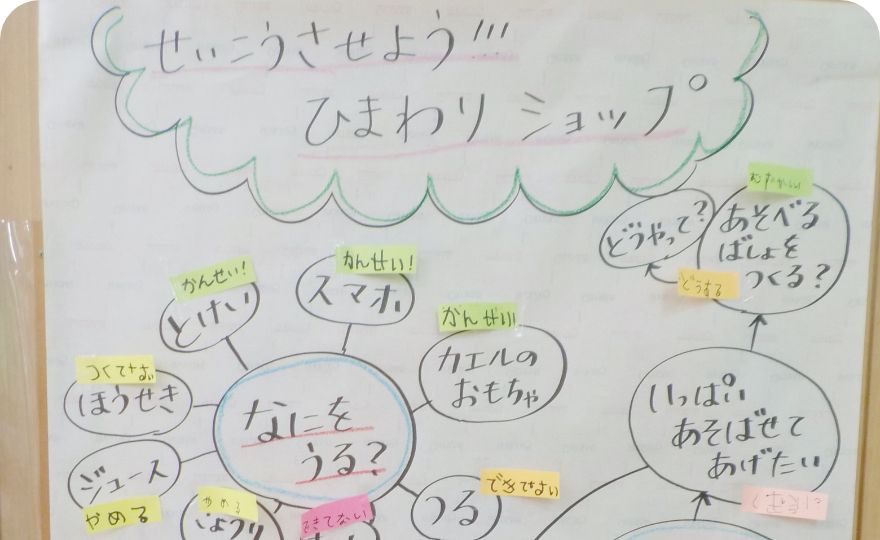 せいこうさせよう!!!
ひまわりショップ
むずかしい
どうやって?
あそべる
ばしょを
つくる?
どうする
かんせい!
とけい
かんせい!
スマホ
かんせい
カエルの
おもちゃ
ほうせき
なにを
うる?
いっぱい
あそばせて
あげたい
ジュース
やめる
やめる
できてない
つる
できてない